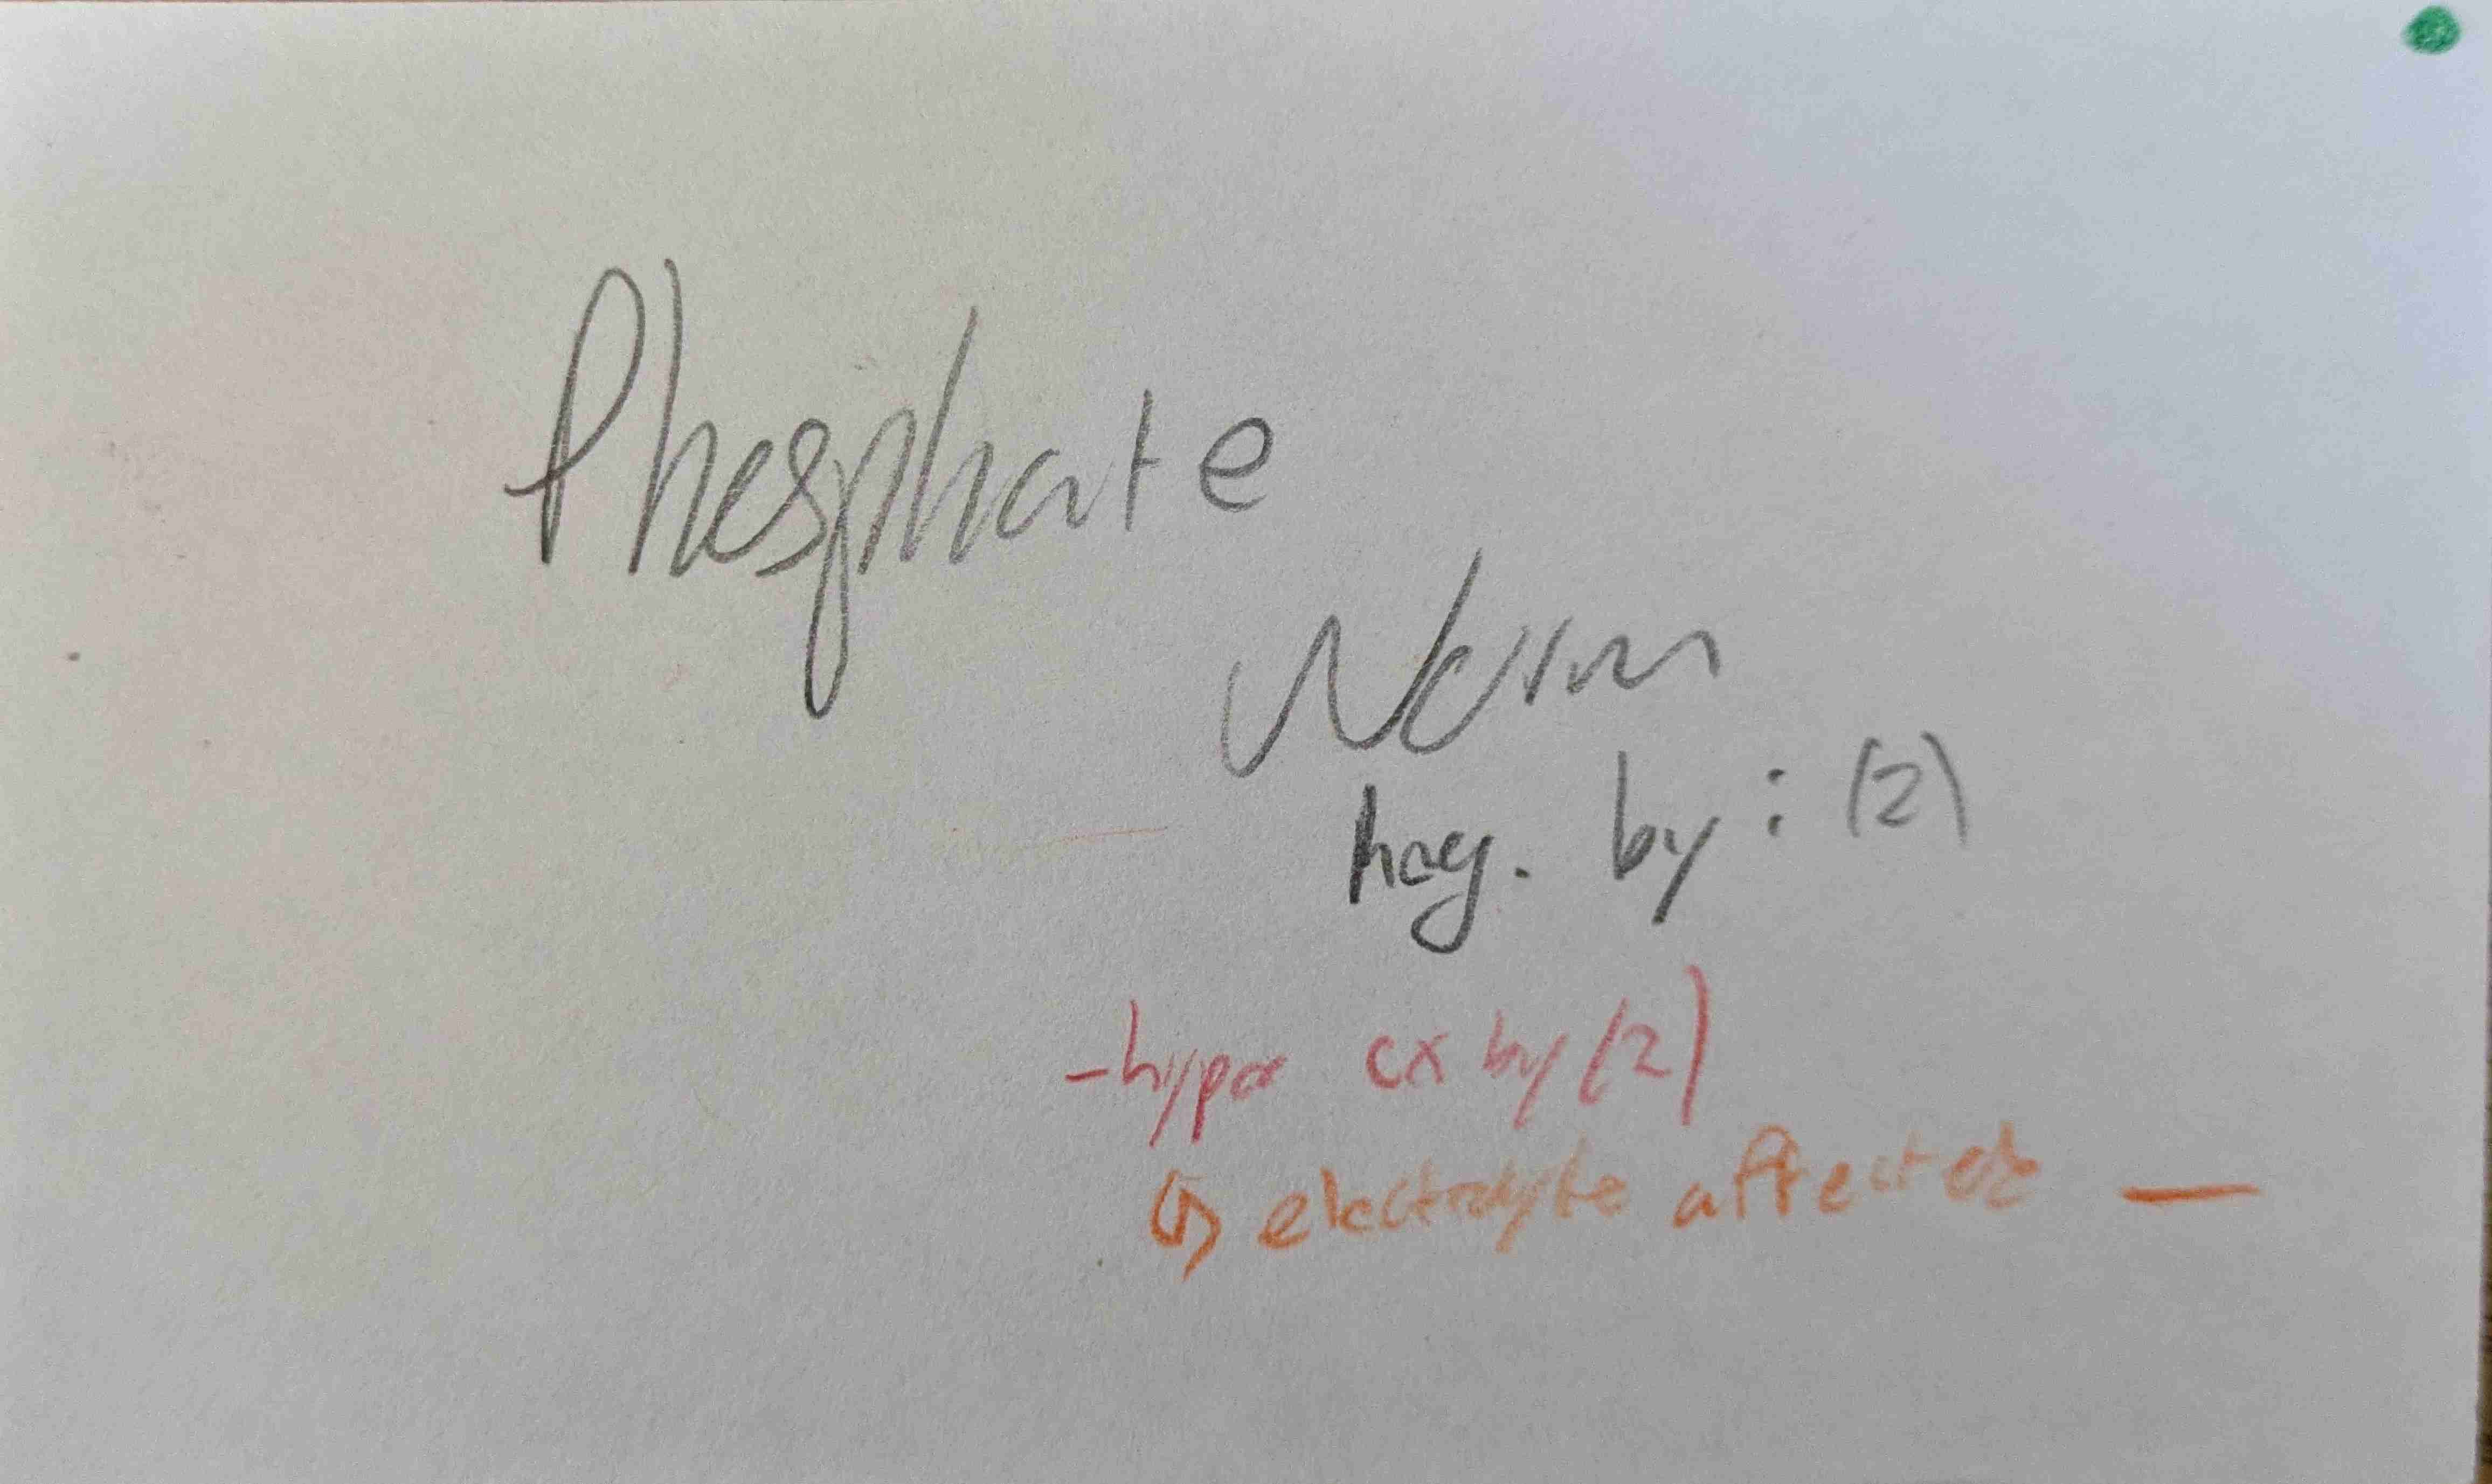 Phosphate
Norm
by: (2)
- hyper cx by (2)
↳ electrolyte affected —